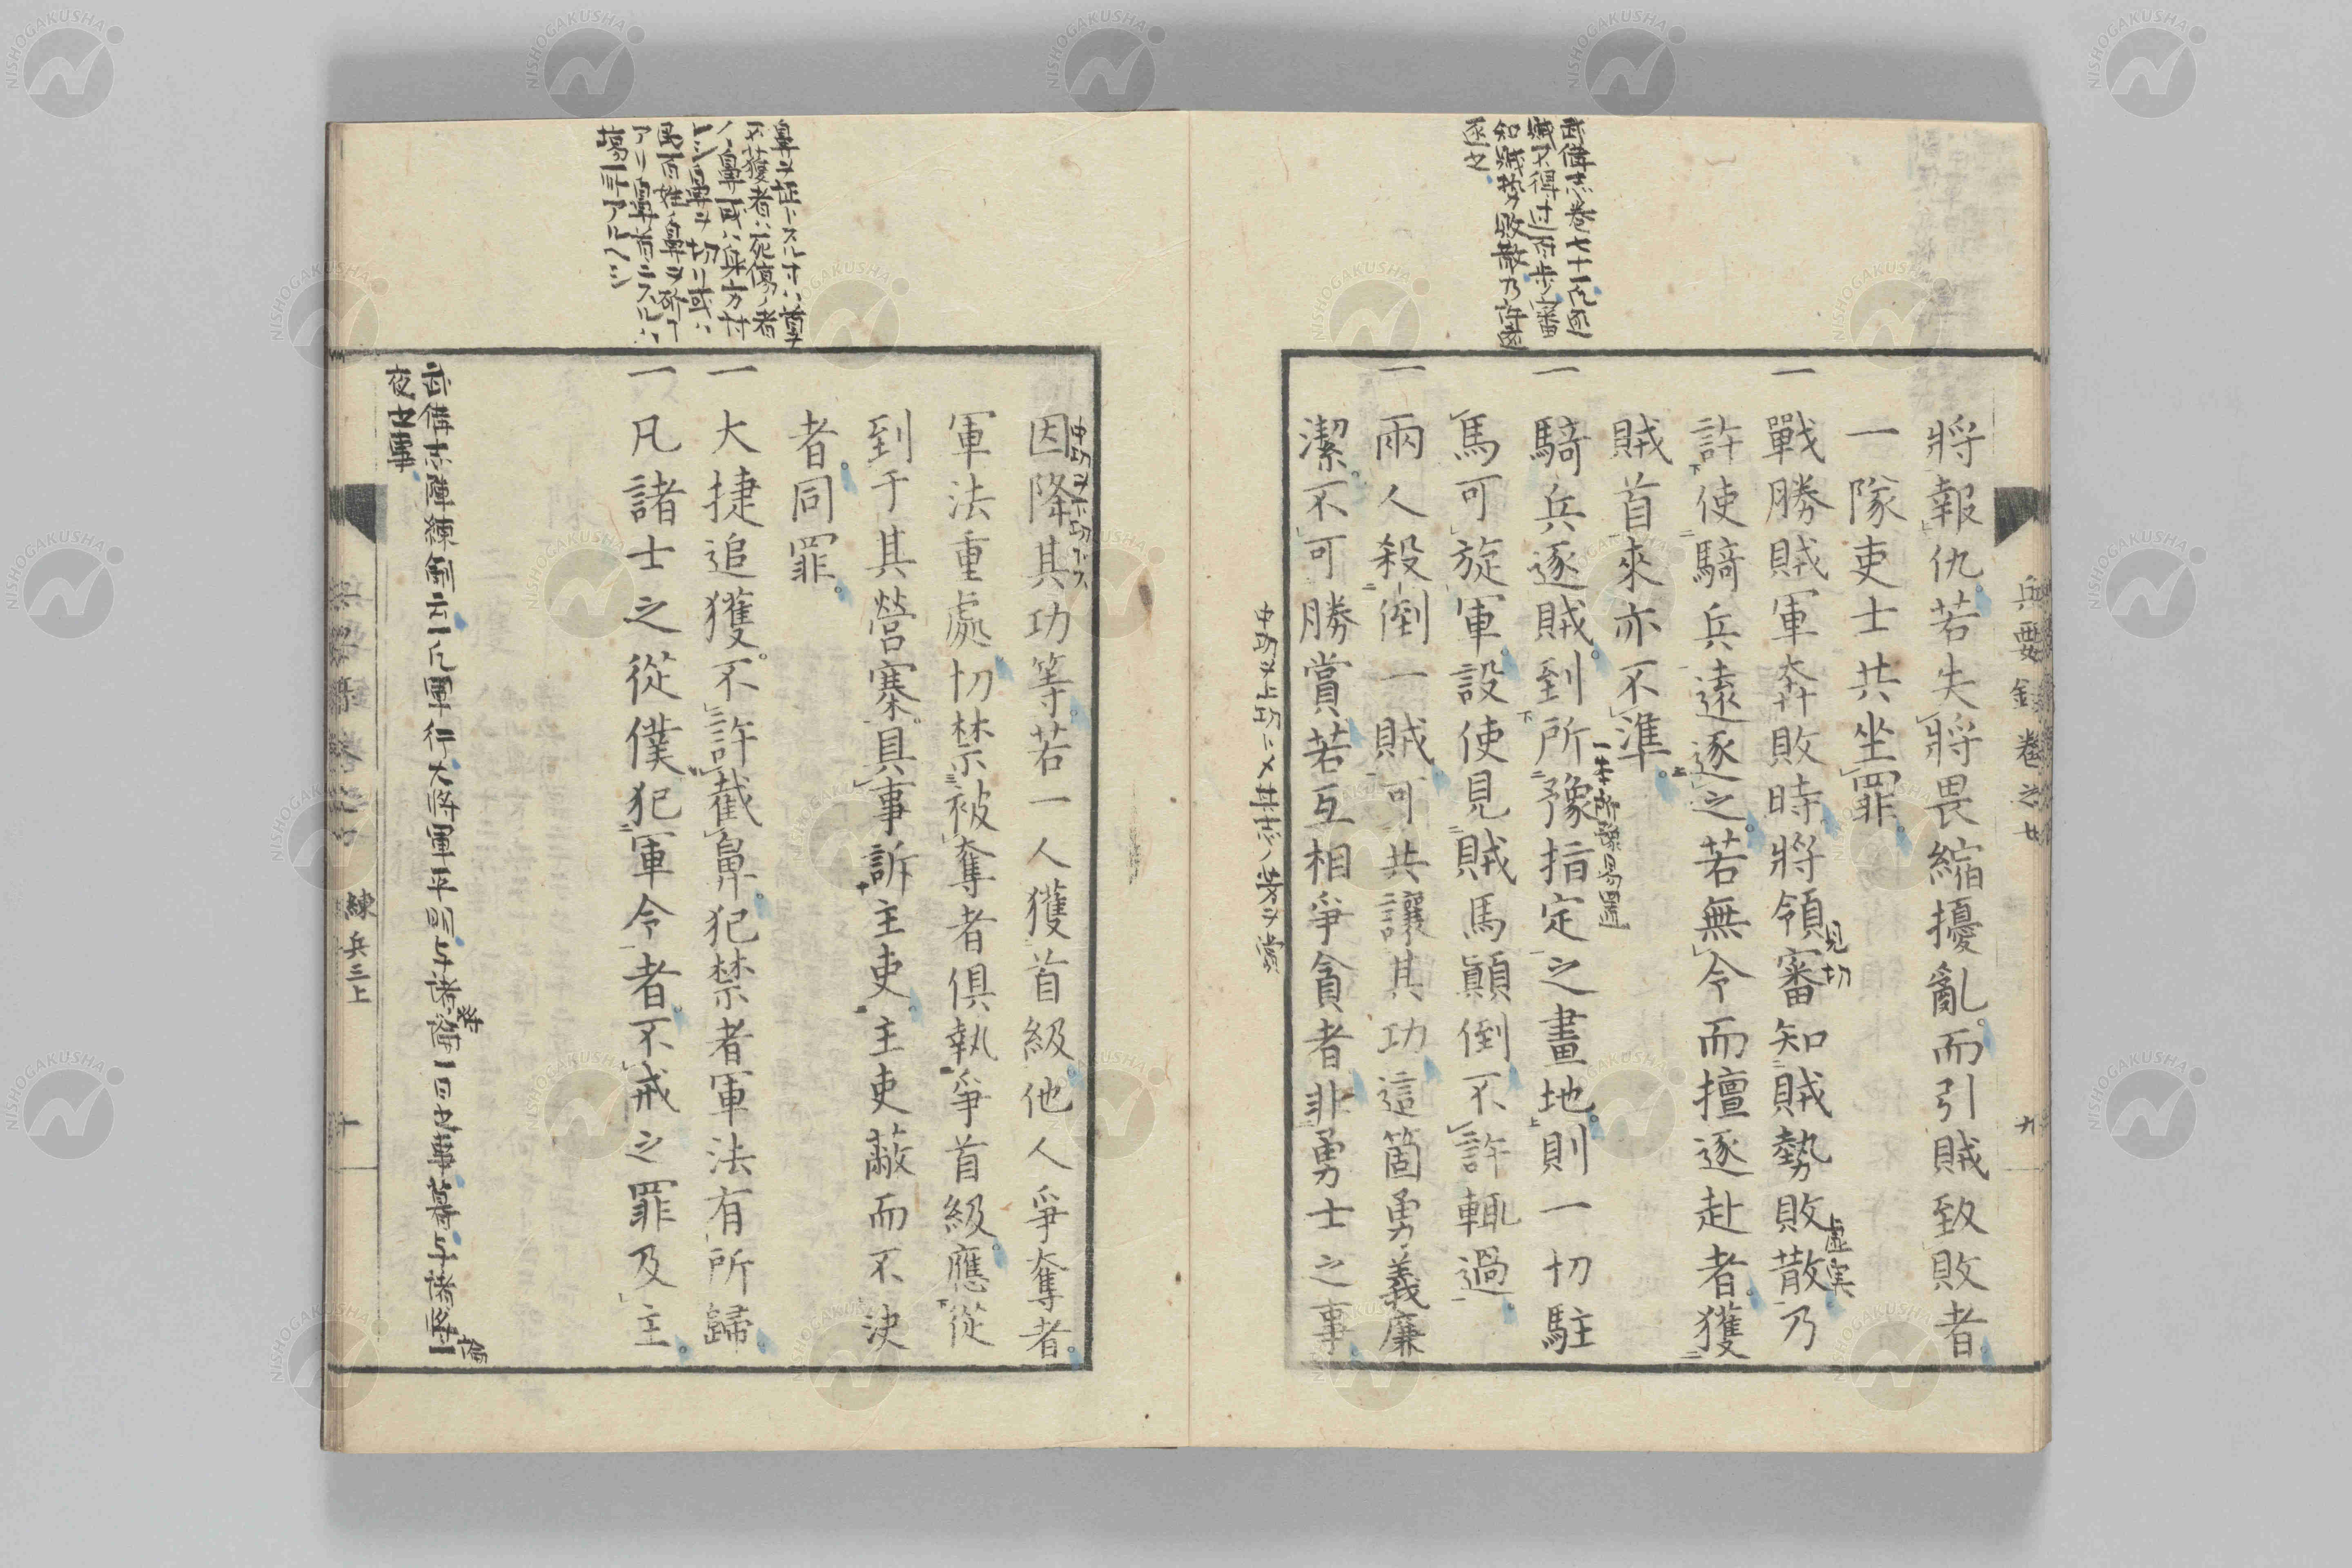 兵要録卷之廿
九
將報仇若失將畏縮擾亂而引賊致敗者
一隊吏士共坐罪
一戰勝賊軍奔敗時將領審知賊勢敗散乃
見切
虚実
許使騎兵遠逐之若無令而擅逐赴者獲
賊首來亦不準
一騎兵逐賊到所豫指定之畫地則一切駐
一本所豫易置
馬可旋軍設使見賊馬顚倒不許輒過
一兩人殺倒一賊可共讓其功這箇勇義廉
潔不可勝賞若互相爭貪者非勇士之事
中功ヲ上功ニメ其志ノ芳ヲ賞
武備志卷七十一凡逐
賊不得过百步審
知賊勢敗散乃許遠
逐之
因降其功等若一人獲首級他人爭奪者
中功ヲ下功トス
軍法重處切禁被奪者俱執爭首級應從
到于其營寨具事訴主吏主吏蔽而不決
者同罪
一大捷追獲不許截鼻犯禁者軍法有所歸
一凡諸士之從僕犯軍令者不戒之罪及主
鼻ヲ証トスル寸ハ首ヲ
不獲者ハ死傷ノ者
ノ鼻或ハ身方討
シ鼻ヲ切リ或ハ
民百姓ノ鼻ヲ斫丁
アリ鼻首ニスルハ
塲所アルヘシ
武備志陣練制云一凡軍行大將軍平明与諸將論一日廿事暮与諸將論一
夜廿事
練兵三上
十
NISHOGAKUSHA